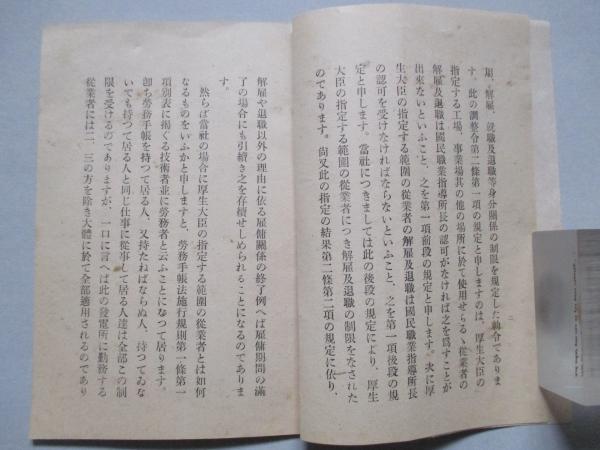 用、解雇、就職及退職等身分關係の制限を規定した勅令でありま
す。此の調整令第二條第一項の規定と申しますのは、厚生大臣の
指定する工場、事業場其の他の場所に於て使用せらるゝ從業者の
解雇及退職は國民職業指導所長の認可がなければ之を爲すことが
出來ないといふこと、之を第一項前段の規定と申します。次に厚
生大臣の指定する範圍の從業者の解雇及退職は國民職業指導所長
の認可を受けなければならないといふこと、之を第一項後段の規
定と申します。當社につきましては此の後段の規定により、厚生
大臣の指定する範圍の從業者につき解雇及退職の制限をなされた
のであります。尙又此の指定の結果第二條第二項の規定に依り、
二
解雇や退職以外の理由に依る雇傭關係の終了例へば雇傭期間の滿
了の場合にも引續き之を存續せしめられることになるのでありま
す。
然らば當社の場合に厚生大臣の指定する範圍の從業者とは如何
なるものをいふかと申しますと、勞務手帳法施行規則第一條第一
項別表に揭ぐる技術者並に勞務者と云ふことになつて居ります。
卽ち勞務手帳を持つて居る人、又持たねばならぬ人、持つてゐな
いでも持つて居る人と同じ仕事に從事して居る人達は全部この制
限を受けるのでありますが、一口に言へば此の發電所に勤務する
從業者には二、三の方を除き大體に於て全部適用されるのであり